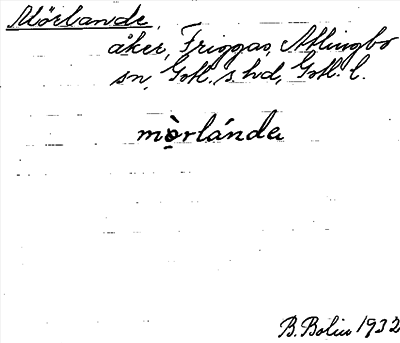 Mörlande,
åker, Friggas, Atlingbo
sn, Gotl. s. hd, Gotl. l.
mọ̀rlánda
B. Bolin 1932